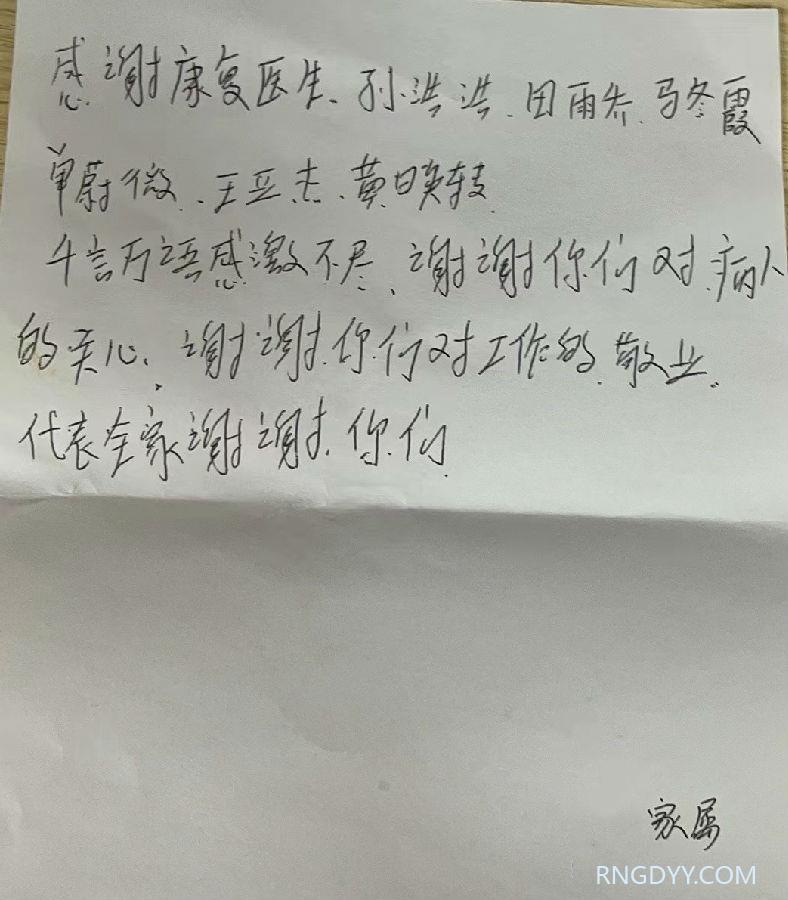 感谢康复医生、孙洪洪、田雨乔、马冬霞
单蔚微、王亚杰、黄日英转
千言万语感激不尽、谢谢你们对病人
的关心、谢谢你们对工作的敬业、
代表全家谢谢你们
家属
RNGDYY.COM